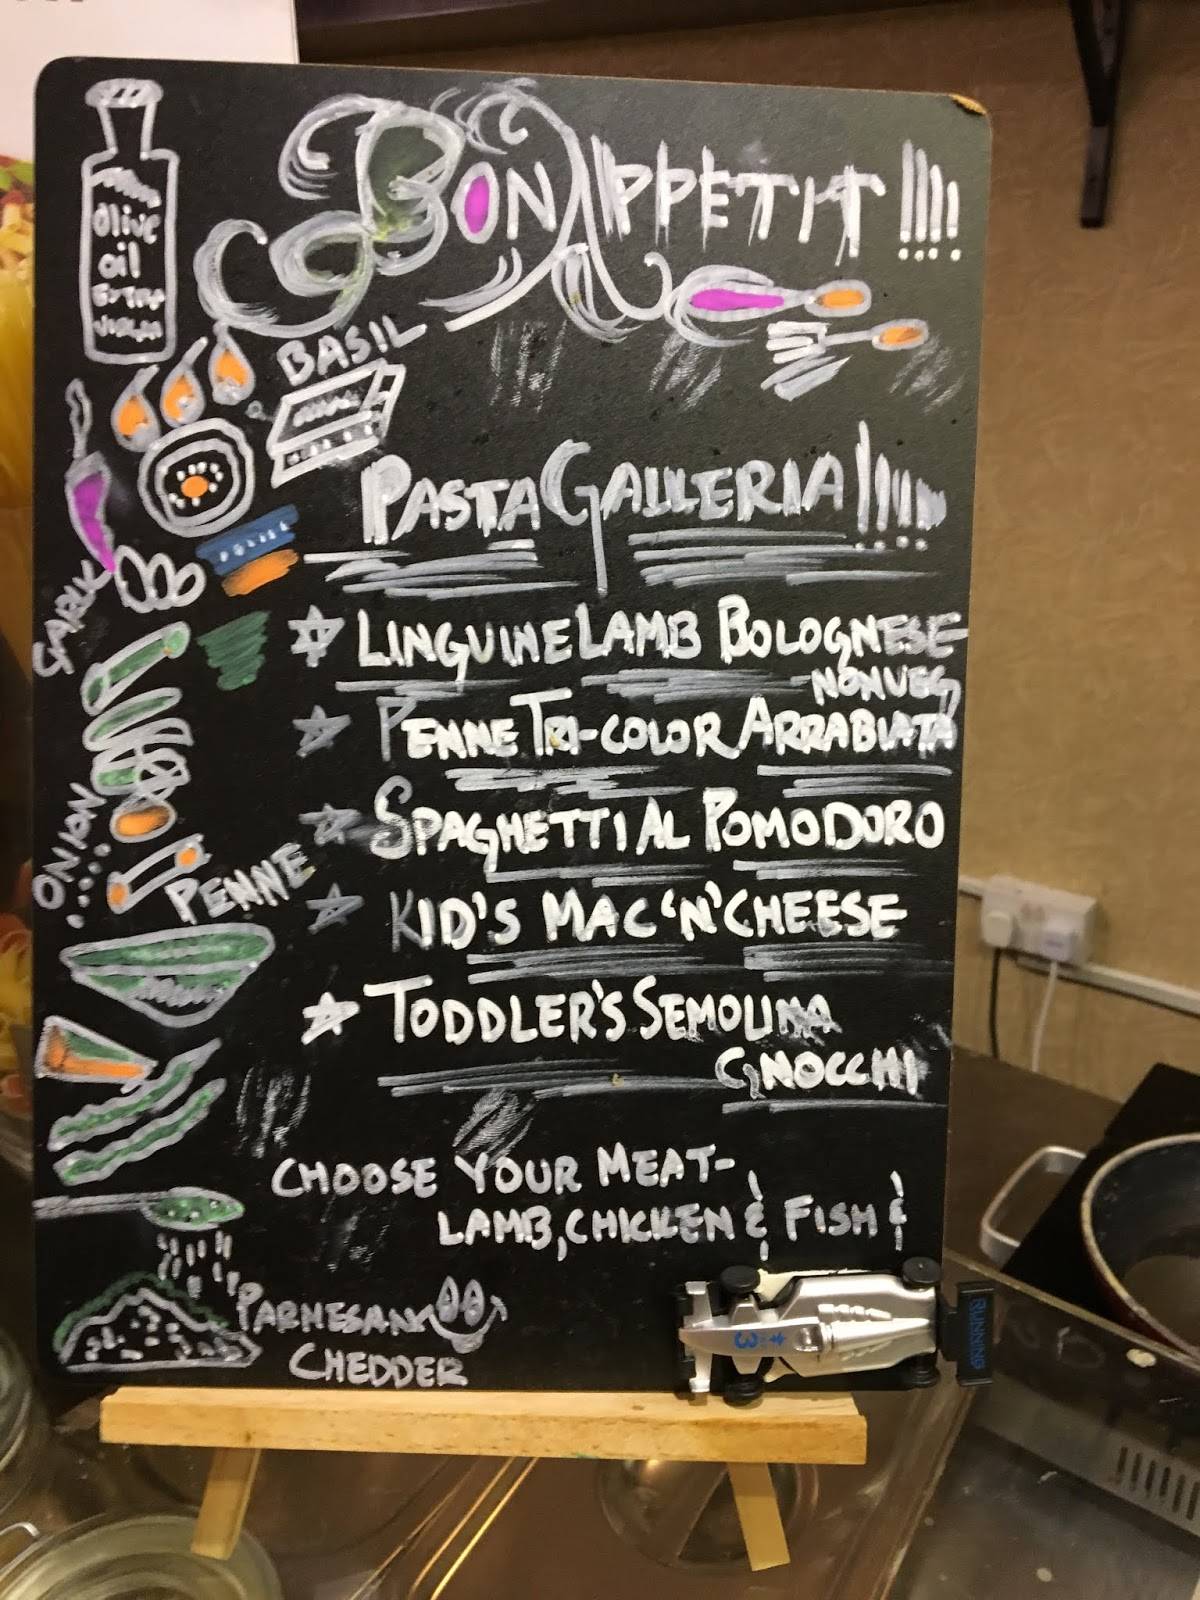 BON APPETIT !!!!
Olive
oil
Extra
BASIL
PASTA GALLERIA !!!!!
GARLIC
LINGUINE LAMB BOLOGNESE
NONVEG
PENNE TRI-COLOR ARRABIATA
SPAGHETTI AL POMODORO
ONION
PENNE
KID'S MAC 'N' CHEESE
TODDLER'S SEMOLINA
GNOCCHI
CHOOSE YOUR MEAT-
LAMB, CHICKEN & FISH &
PARMESAN
CHEDDER
3
RUNNING